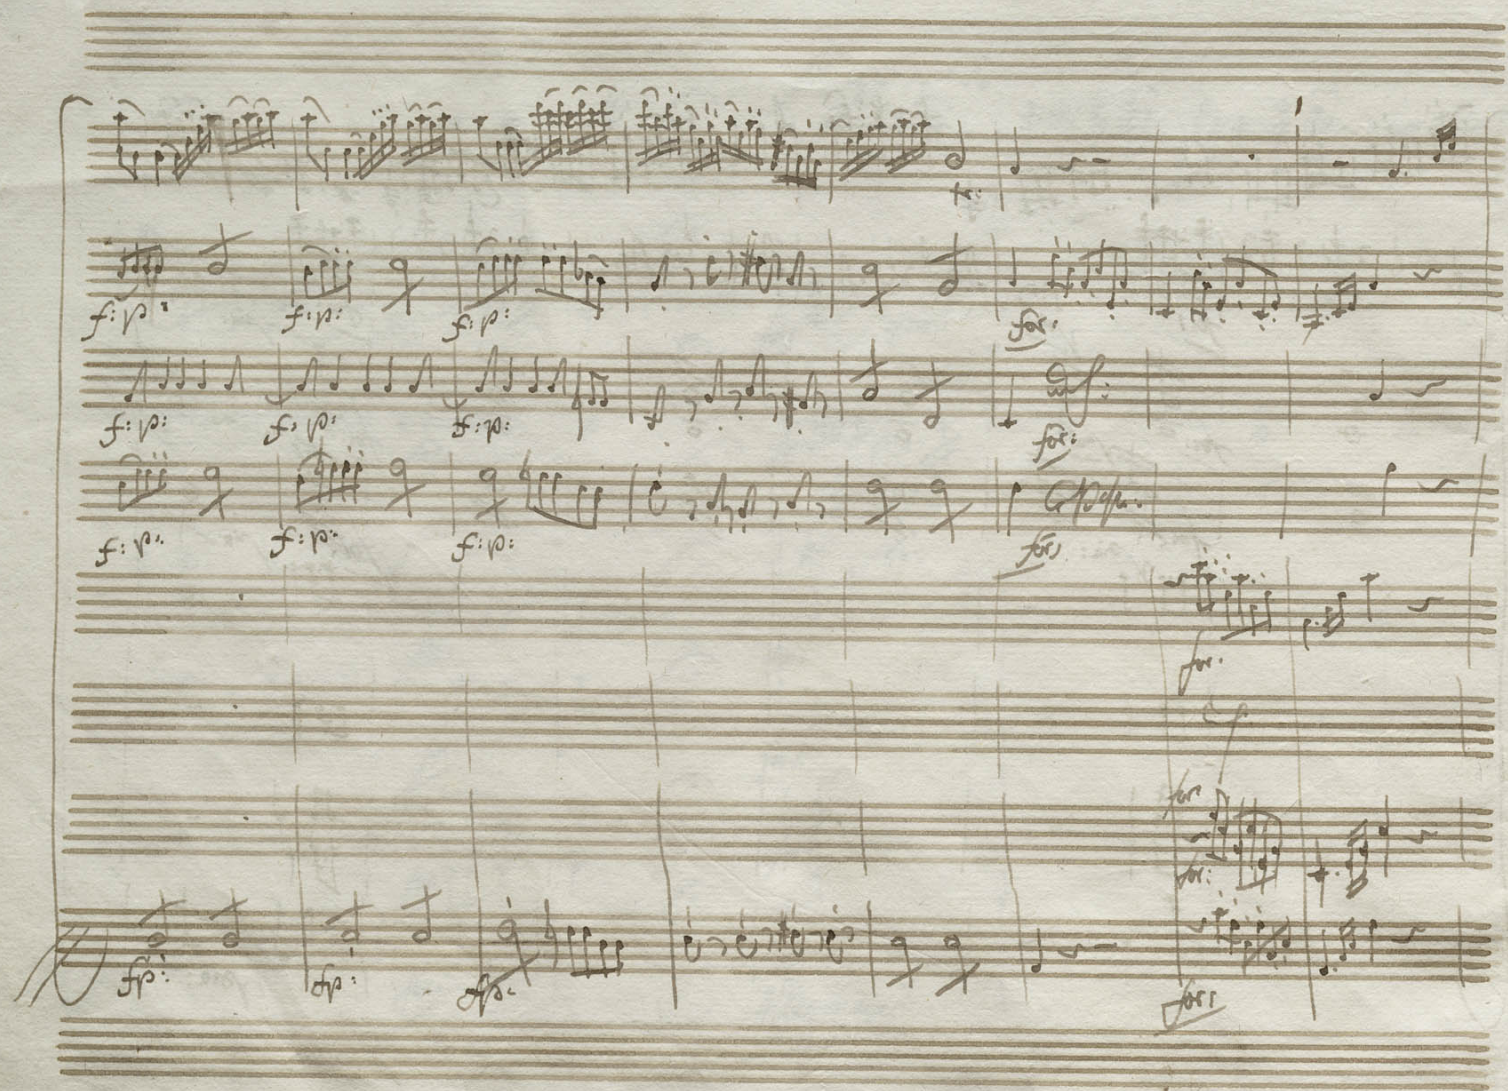 f: p: f: p: f: p: for:
f: p: f: p: f: p: for:
f: p: f: p: f: p: for:
for:
for:
for:
fp: fp: fp: for: